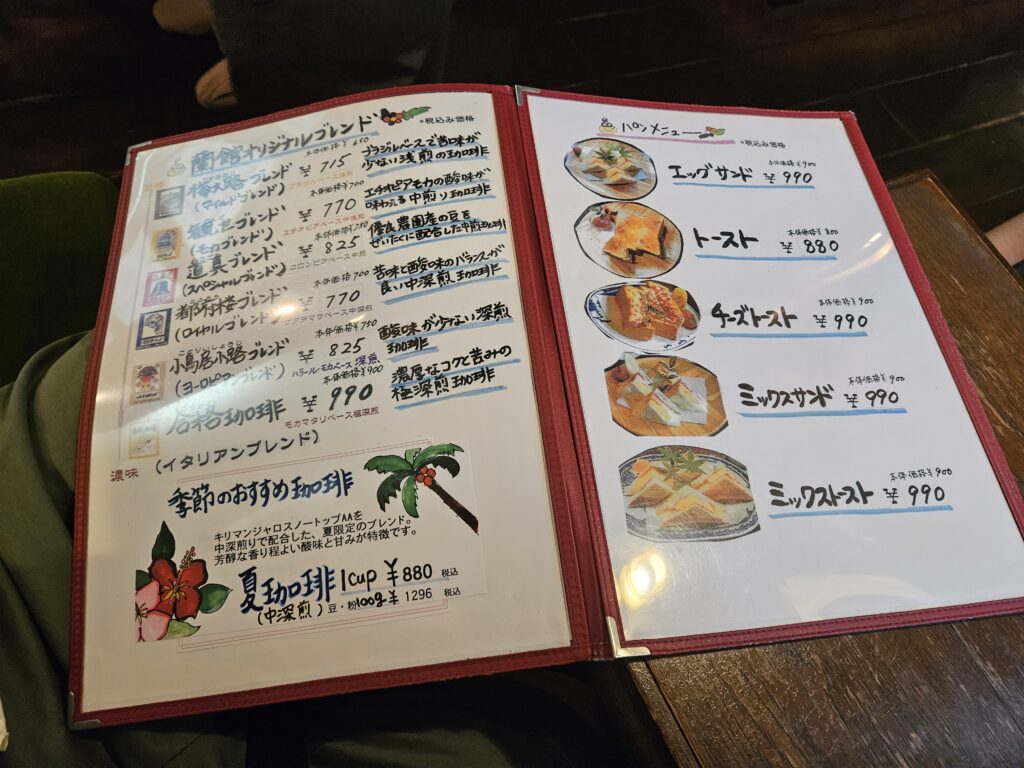 蘭館オリジナルブレンド
*税込み価格
本体価格¥650
梅大路ブレンド ¥715
(マイルドブレンド)
ブラジルベース浅煎
ブラジルベースで苦味が
少ない浅煎の珈琲
本体価格¥700
観世ブレンド ¥770
(モカブレンド)
エチオピアベース中浅煎
エチオピアモカの酸味が
味わえる中煎り珈琲
本体価格¥750
道真ブレンド ¥825
(スペシャルブレンド)
コロンビアベース中煎
優良農園産の豆を
ぜいたくに配合した中煎珈琲
本体価格700
都府楼ブレンド ¥770
(ロイヤルブレンド)
グァテマラベース中深煎
苦味と酸味のバランスが
良い中深煎珈琲
本体価格¥750
小鳥居小路ブレンド ¥825
(ヨーロピアンブレンド)
ハラール・モカベース 深煎
酸味が少ない深煎
珈琲
本体価格¥900
岩格珈琲 ¥990
モカマタリベース極深煎
濃厚なコクと苦みの
極深煎珈琲
濃味
(イタリアンブレンド)
季節のおすすめ珈琲
キリマンジャロスノートップAAを
中深煎りで配合した、夏限定のブレンド。
芳醇な香り程よい酸味と甘みが特徴です。
夏珈琲 1cup ¥880 税込
(中深煎) 豆・粉100g¥ 1296 税込
パンメニュー
*税込み価格
本体価格¥900
エッグサンド ¥990
本体価格¥800
トースト ¥880
本体価格¥900
チーズトースト ¥990
本体価格¥900
ミックスサンド ¥990
本体価格¥900
ミックストースト ¥990